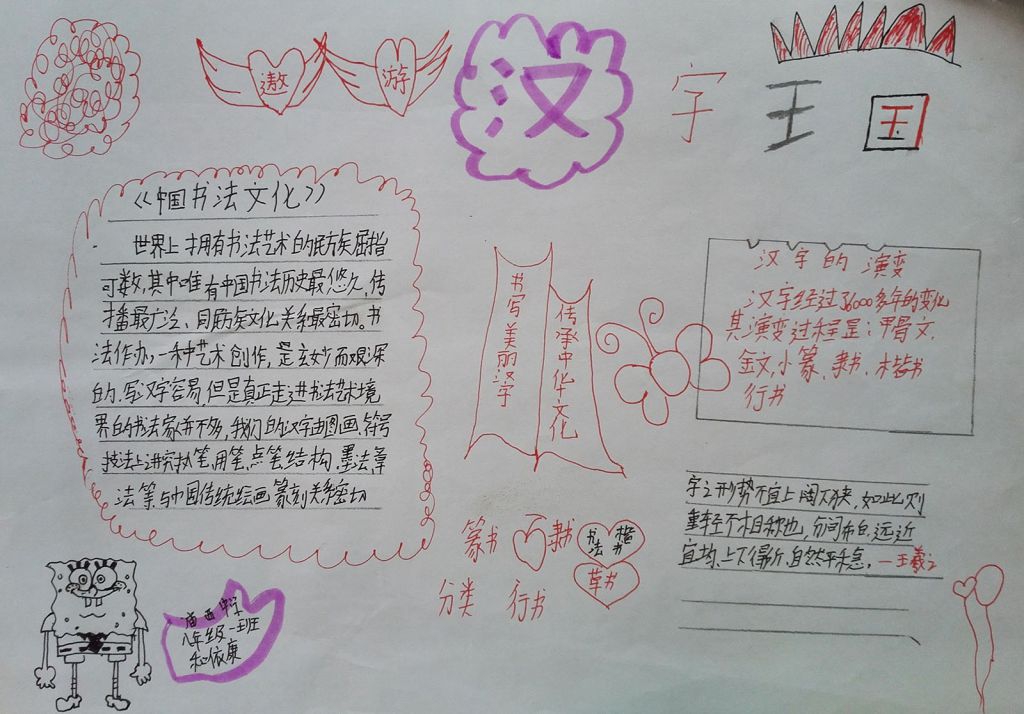 遨游汉字王国
《中国书法文化》
世界上拥有书法艺术的民族屈指
可数,其中唯有中国书法历史最悠久,传
播最广泛、同民族文化关系最密切。书
法作为一种艺术创作,是玄妙而艰深
的.写汉字容易,但是真正走进书法艺术境
界的书法家并不多,我们的汉字由图画.符号
技法上讲究执笔,用笔,点笔结构.墨法章
法等与中国传统绘画篆刻关系密切
书写美丽汉字
传承中华文化
汉字的演变
汉字经过3600多年的变化
其演变过程是:甲骨文,
金文,小篆、隶书、楷书
行书
字之形势不宜上阔下狭,如此则
重轻不相称也,分间布白.远近
宜均.上下得所.自然平稳.—王羲之
篆书 隶书 书法 楷书
草书
分类 行书
中学
八年级一班
和依康